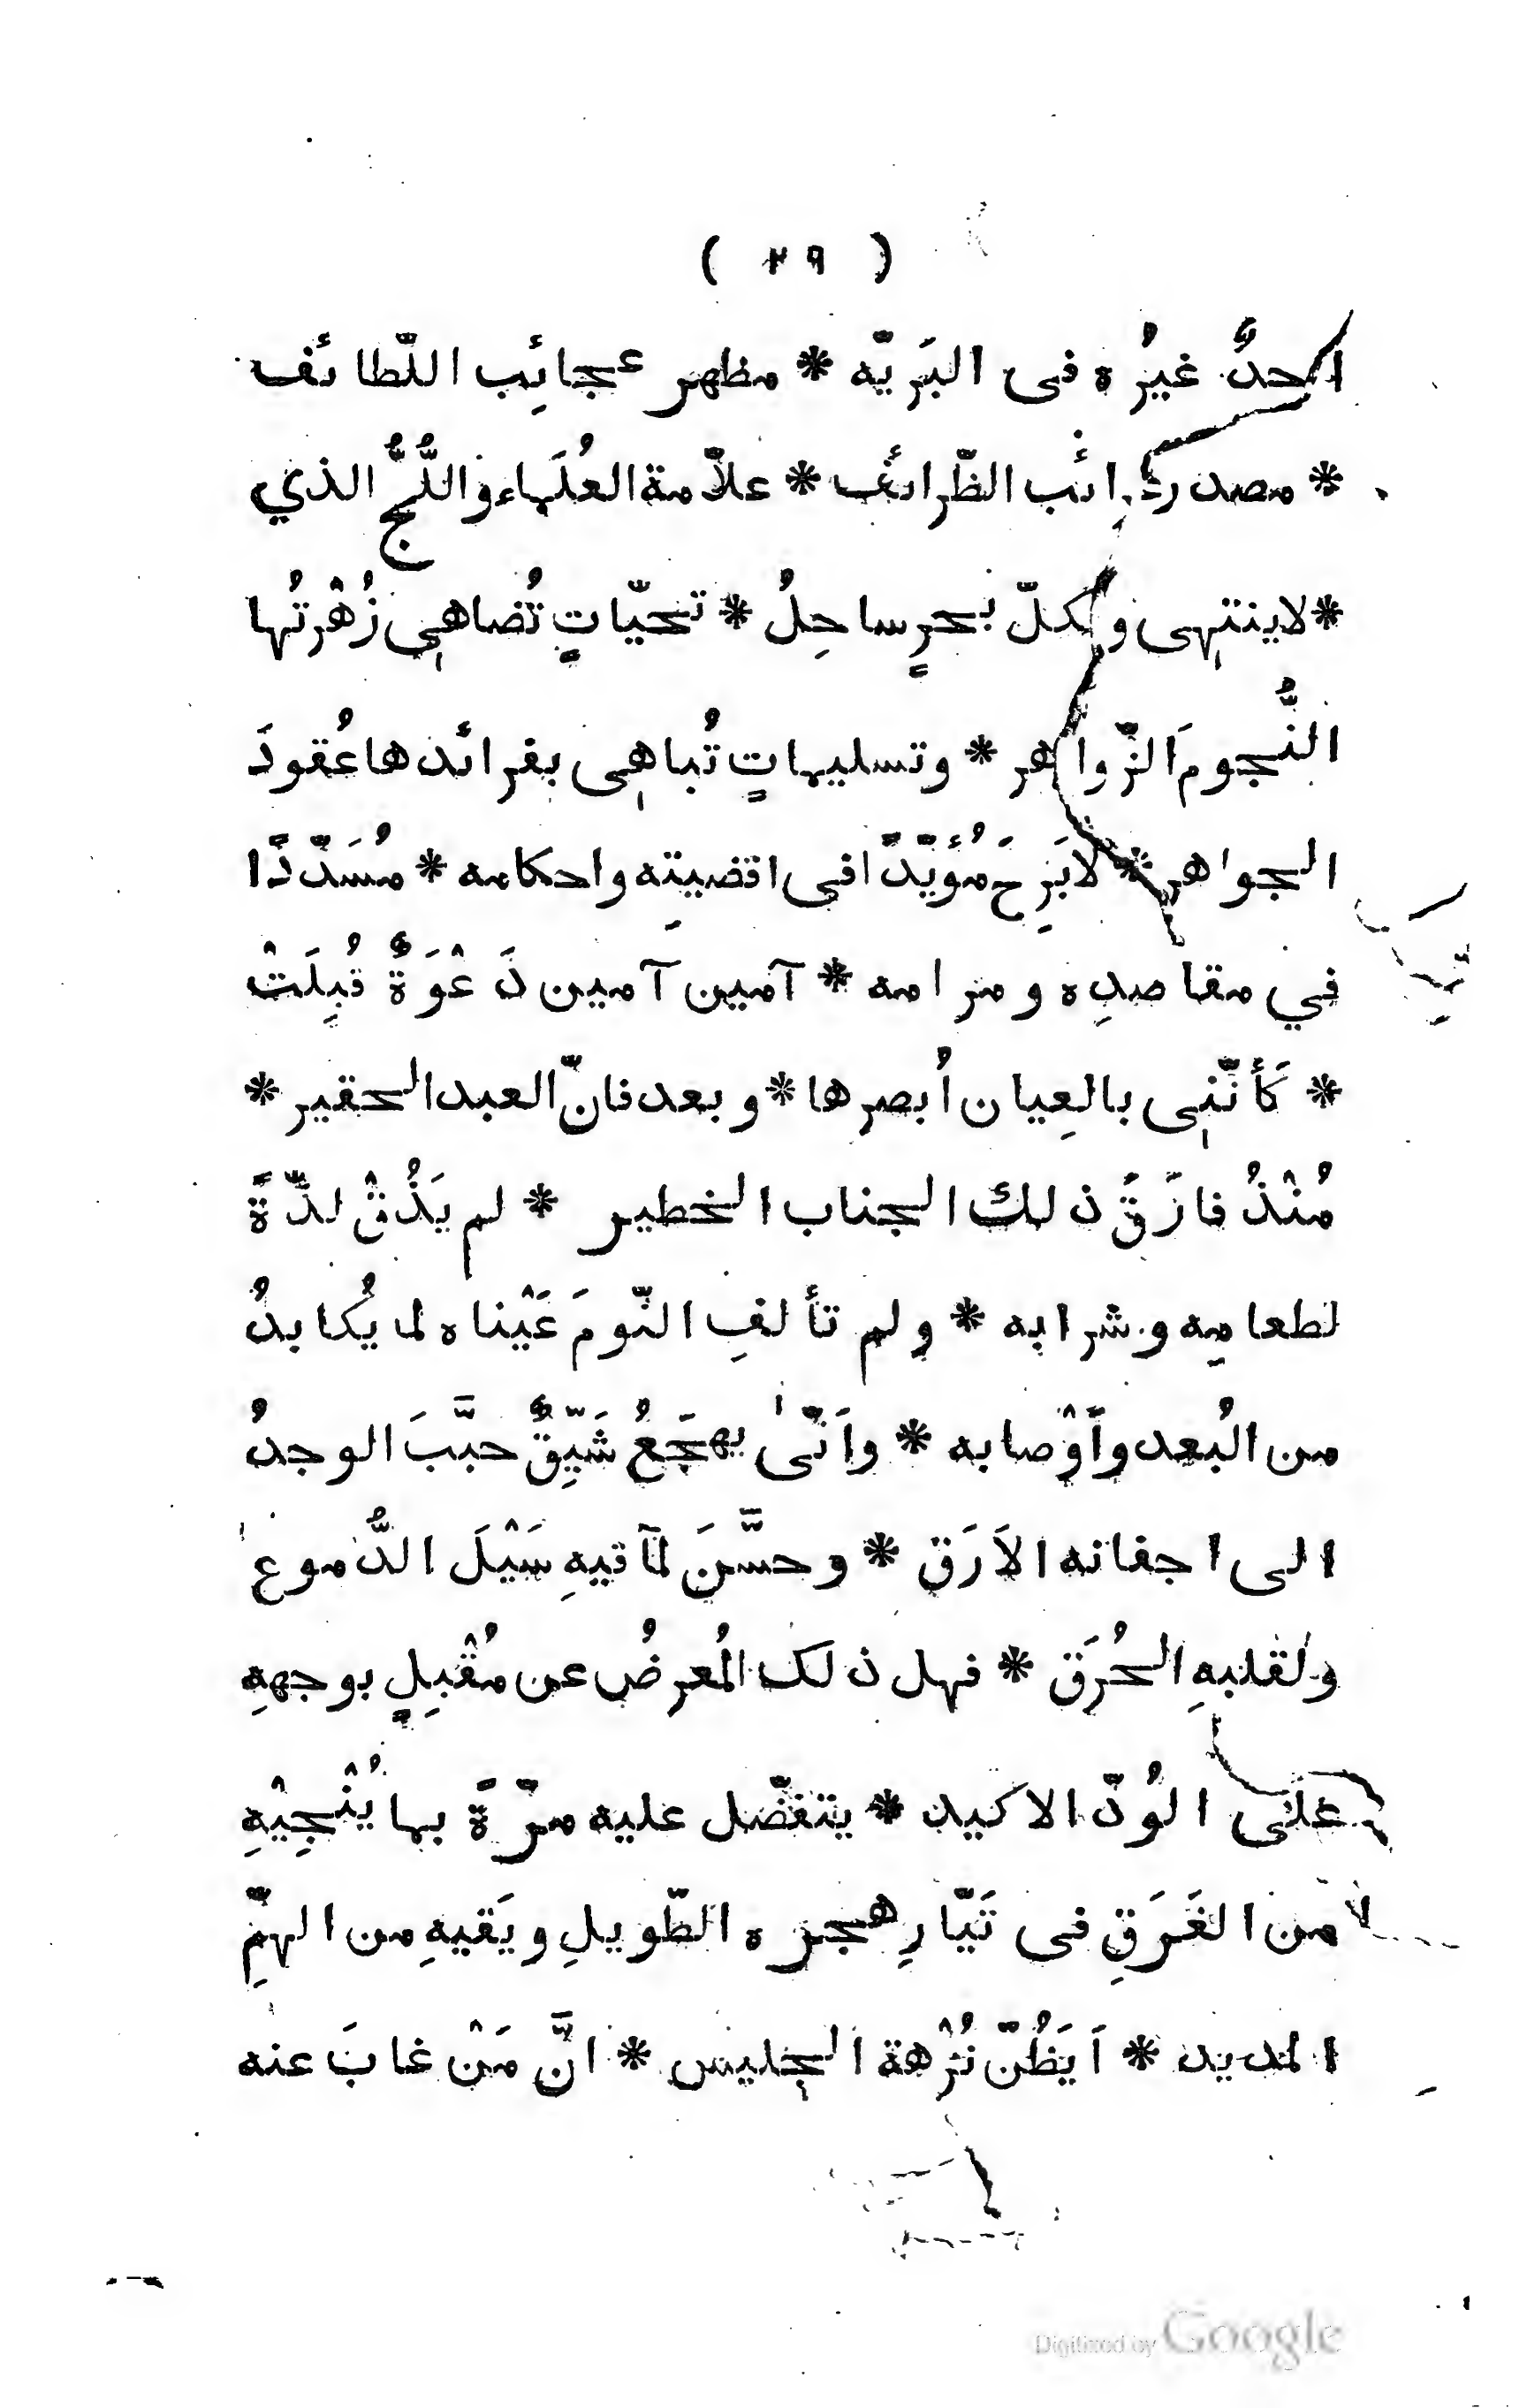 ( ٢٩ )
احدٌ غيرُه فى البَريّه * مظهر عجائِب اللّطائف
* مصدر غرائب الظّرائف * علاّمة العُلَماء واللُّجُّ الذي
* لاينتهِى وكلّ بحرٍ ساحِلُ * تحيّاتٍ تُضاهِى زُهْرتُها
النُّجومَ الزّواهر * وتسليماتٍ تُباهِى بفرائدها عُقودَ
الجواهر * لابَرِحَ مُؤيّدًا فى اقضيتِه واحكامه * مُسَدّدًا
في مقاصدِه ومرامه * آمين آمين دَعْوَةٌ قُبِلَتْ
* كَأنّنِى بالعِيان اُبصرها * وبعد فانّ العبد الحقير *
مُنْذُ فارَقَ ذلك الجناب الخطير * لم يَذُقْ لذّةً
لطعامِه وشرابه * ولم تألفِ النّومَ عَيْناه لما يُكابدُ
من البُعد وَاَوْصابه * واَنّٰى يهجَعُ شَيّقٌ حبَّبَ الوجدُ
الى اجفانه الاَرَق * وحسَّنَ لمآقيهِ سَيْلَ الدُّموع
ولقلبهِ الحُرَق * فهل ذلك المُعرضُ عن مُقْبِلٍ بوجههِ
علَى الوُدّ الاكيد * يتفضّل عليه مرّةً بما يُنْجِيْهِ
من الغَرَقِ فى تَيّارِ هجره الطّويلِ ويَقيهِ من الهمِّ
المديد * اَيَظُنّ نُزْهة الجليس * انَّ مَنْ غابَ عنه
Digitized by Google